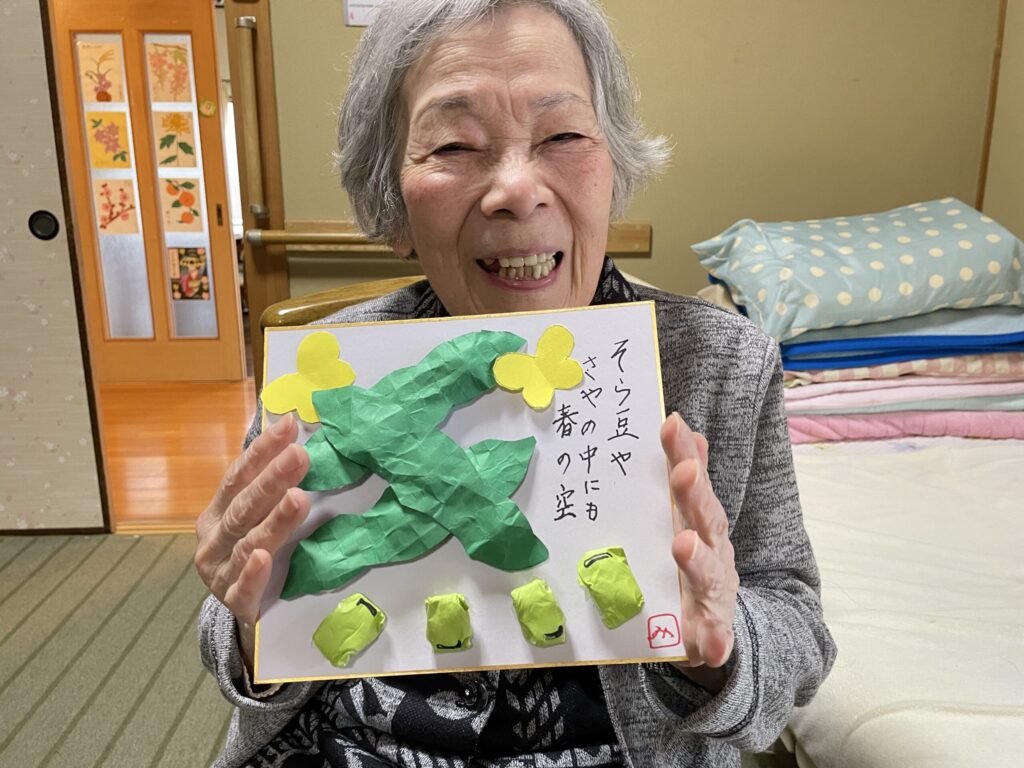 そら豆や
さやの中にも
春の空
み